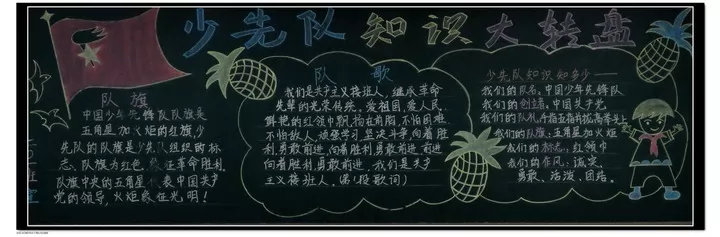 少先队知识大转盘
队旗
中国少年先锋队队旗是
五角星加火炬的红旗,少
先队的队旗是少先队组织的标
志。队旗为红色,象征革命胜利
队旗中央的五角星代表中国共产
党的领导,火炬象征光明!
队歌
我们是共产主义接班人,继承革命
先辈的光荣传统,爱祖国,爱人民,
鲜艳的红领巾飘扬在前胸,不怕困难
不怕敌人,顽强学习,坚决斗争,向着胜
利,勇敢前进,向着胜利,勇敢前进,前进
向着胜利,勇敢前进,我们是共产
主义接班人,
少先队知识知多少——
我们的队名:中国少年先锋队
我们的创立者:中国共产党
我们的队礼:
我们的队旗:五角星加火炬
我们的标志:红领巾
我们的作风:诚实、
勇敢、活泼、团结。